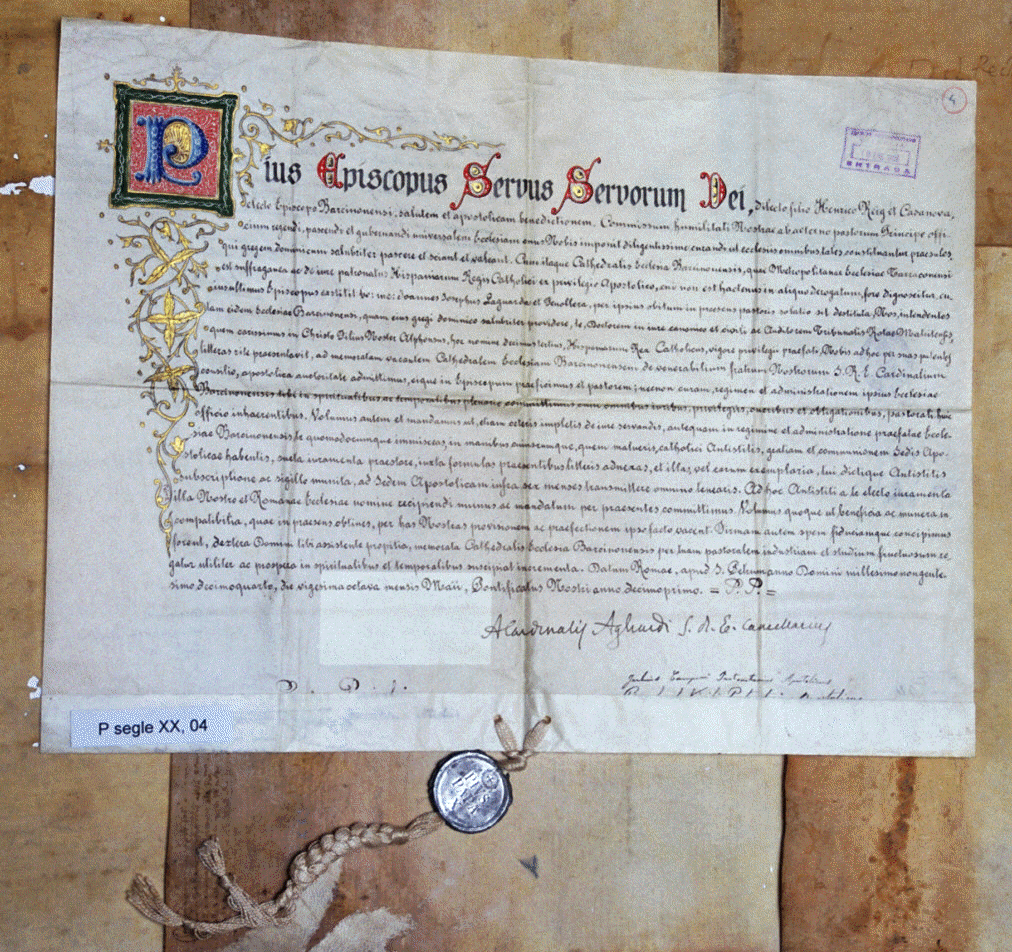 4
ENTRADA
Pius Episcopus Servus Servorum Dei, dilecto filio Henrico Reig et Casanova,
electo Episcopo Barcinonensi, salutem et apostolicam benedictionem. Commissum humilitati Nostrae ab aeterno pastorum Principe offi-
cium regendi, pascendi et gubernandi universalem Ecclesiam onus Nobis imponit diligentissime curandi ut ecclesiis omnibus tales constituantur praesules,
qui gregem dominicum salubriter pascere et sciant et valeant. Cum itaque Cathedralis Ecclesia Barcinonensis, quae Metropolitanae Ecclesiae Tarraconensi
est suffraganea ac de iure patronatus Hispaniarum Regis Catholici ex privilegio Apostolico, cui non est hactenus in aliquo derogatum, fore dignoscitur, cu-
ius ultimus Episcopus extitit bo: me: Ioannes Iosephus Laguarda et Fenollera, per ipsius obitum in praesens pastoris solatio sit destituta, Nos, intendentes
iam eidem Ecclesiae Barcinonensi, quam eius gregi dominico salubriter providere, te, Doctorem in iure canonico et civili ac Auditorem Tribunalis Rotae Matritensis,
quem carissimus in Christo Filius Noster Alphonsus, hoc nomine decimustertius, Hispaniarum Rex Catholicus, vigore privilegii praefati, Nobis ad hoc per suas patentes
litteras rite praesentavit, ad memoratam vacantem Cathedralem Ecclesiam Barcinonensem de venerabilium fratrum Nostrorum S. R. E. Cardinalium
consilio, apostolica auctoritate admittimus, eique in Episcopum praeficimus et pastorem; necnon curam, regimen et administrationem ipsius Ecclesiae
Barcinonensis tibi in spiritualibus ac temporalibus plenarie committimus cum omnibus iuribus, privilegiis, oneribus et obligationibus, pastorali huic
officio inhaerentibus. Volumus autem et mandamus ut, ceteris impletis de iure servandis, antequam in regimine et administratione praefatae Eccle-
siae Barcinonensis, te quomodocumque immisceas, in manibus cuiuscumque, quem malueris, catholici Antistitis, gratiam et communionem Sedis Apo-
stolicae habentis, sueta iuramenta praestare, iuxta formulas praesentibus litteris adnexas, et illas, vel earum exemplaria, tui dictique Antistitis
subscriptione ac sigillo munita, ad Sedem Apostolicam infra sex menses transmittere omnino tenearis. Ad hoc Antistiti a te electo iuramenta
illa Nostro et Romanae Ecclesiae nomine recipiendi munus ac mandatum per praesentes committimus. Volumus quoque ut, beneficia ac munera in-
compatibilia, quae in praesens obtines, per has Nostras provisionem ac praefectionem ipso facto vacent. Firmam autem spem fiduciamque concipimus
forent, dextera Domini tibi assistente propitia, memorata Cathedralis Ecclesia Barcinonensis per tuam pastoralem industriam et studium fructuosum re-
gatur utiliter ac prospera in spiritualibus et temporalibus suscipiat incrementa. Datum Romae, apud S. Petrum anno Domini millesimo nongente-
simo decimoquarto, die vigesima octava mensis Maii, Pontificatus Nostri anno decimoprimo. = P. P. =
A Cardinalis Agliardi S. R. E. Cancellarius
P segle XX, 04